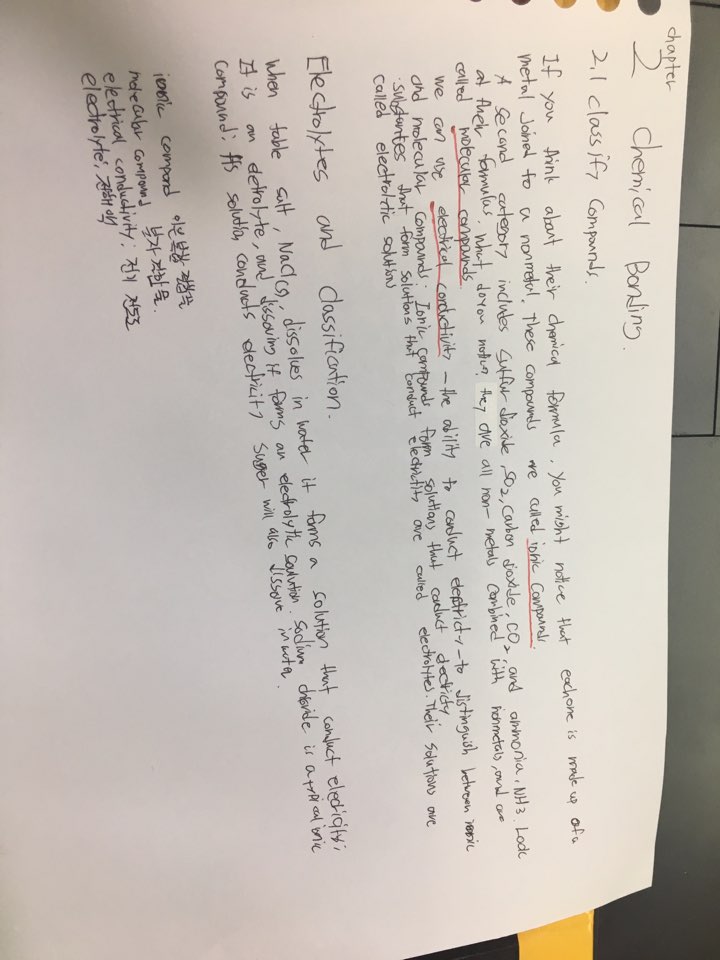 chapter
2 Chemical Bonding.
2.1 classify compounds.
If you think about their chemical formula. You might notice that each one is made up of a
metal joined to a nonmetal. These compounds are called ionic compounds.
A second category includes sulfur dioxide, SO2, carbon dioxide, CO2, and ammonia, NH3. Look
at their formulas what do you notice? they are all non-metals combined with nonmetals, and are
called molecular compounds.
we can use electrical conductivity - the ability to conduct electricity - to distinguish between ionic
and molecular compounds. Ionic compounds form solutions that conduct electricity
substances that form solutions that conduct electricity are called electrolytes. Their solutions are
called electrolytic solution
Electrolytes and classification.
When table salt, NaCl(s), dissolves in water it forms a solution that conduct electricity;
It is an eletrolyte, and dissoving it forms an electrolytic solution. Sodium chloride is a typical ionic
compound: its solution conducts electricity Suger will also dissolve in water.
ionic compond 이온
molecular compound 분자 화합물.
electrical conductivity: 전기 전도도
electrolyte; 전해액